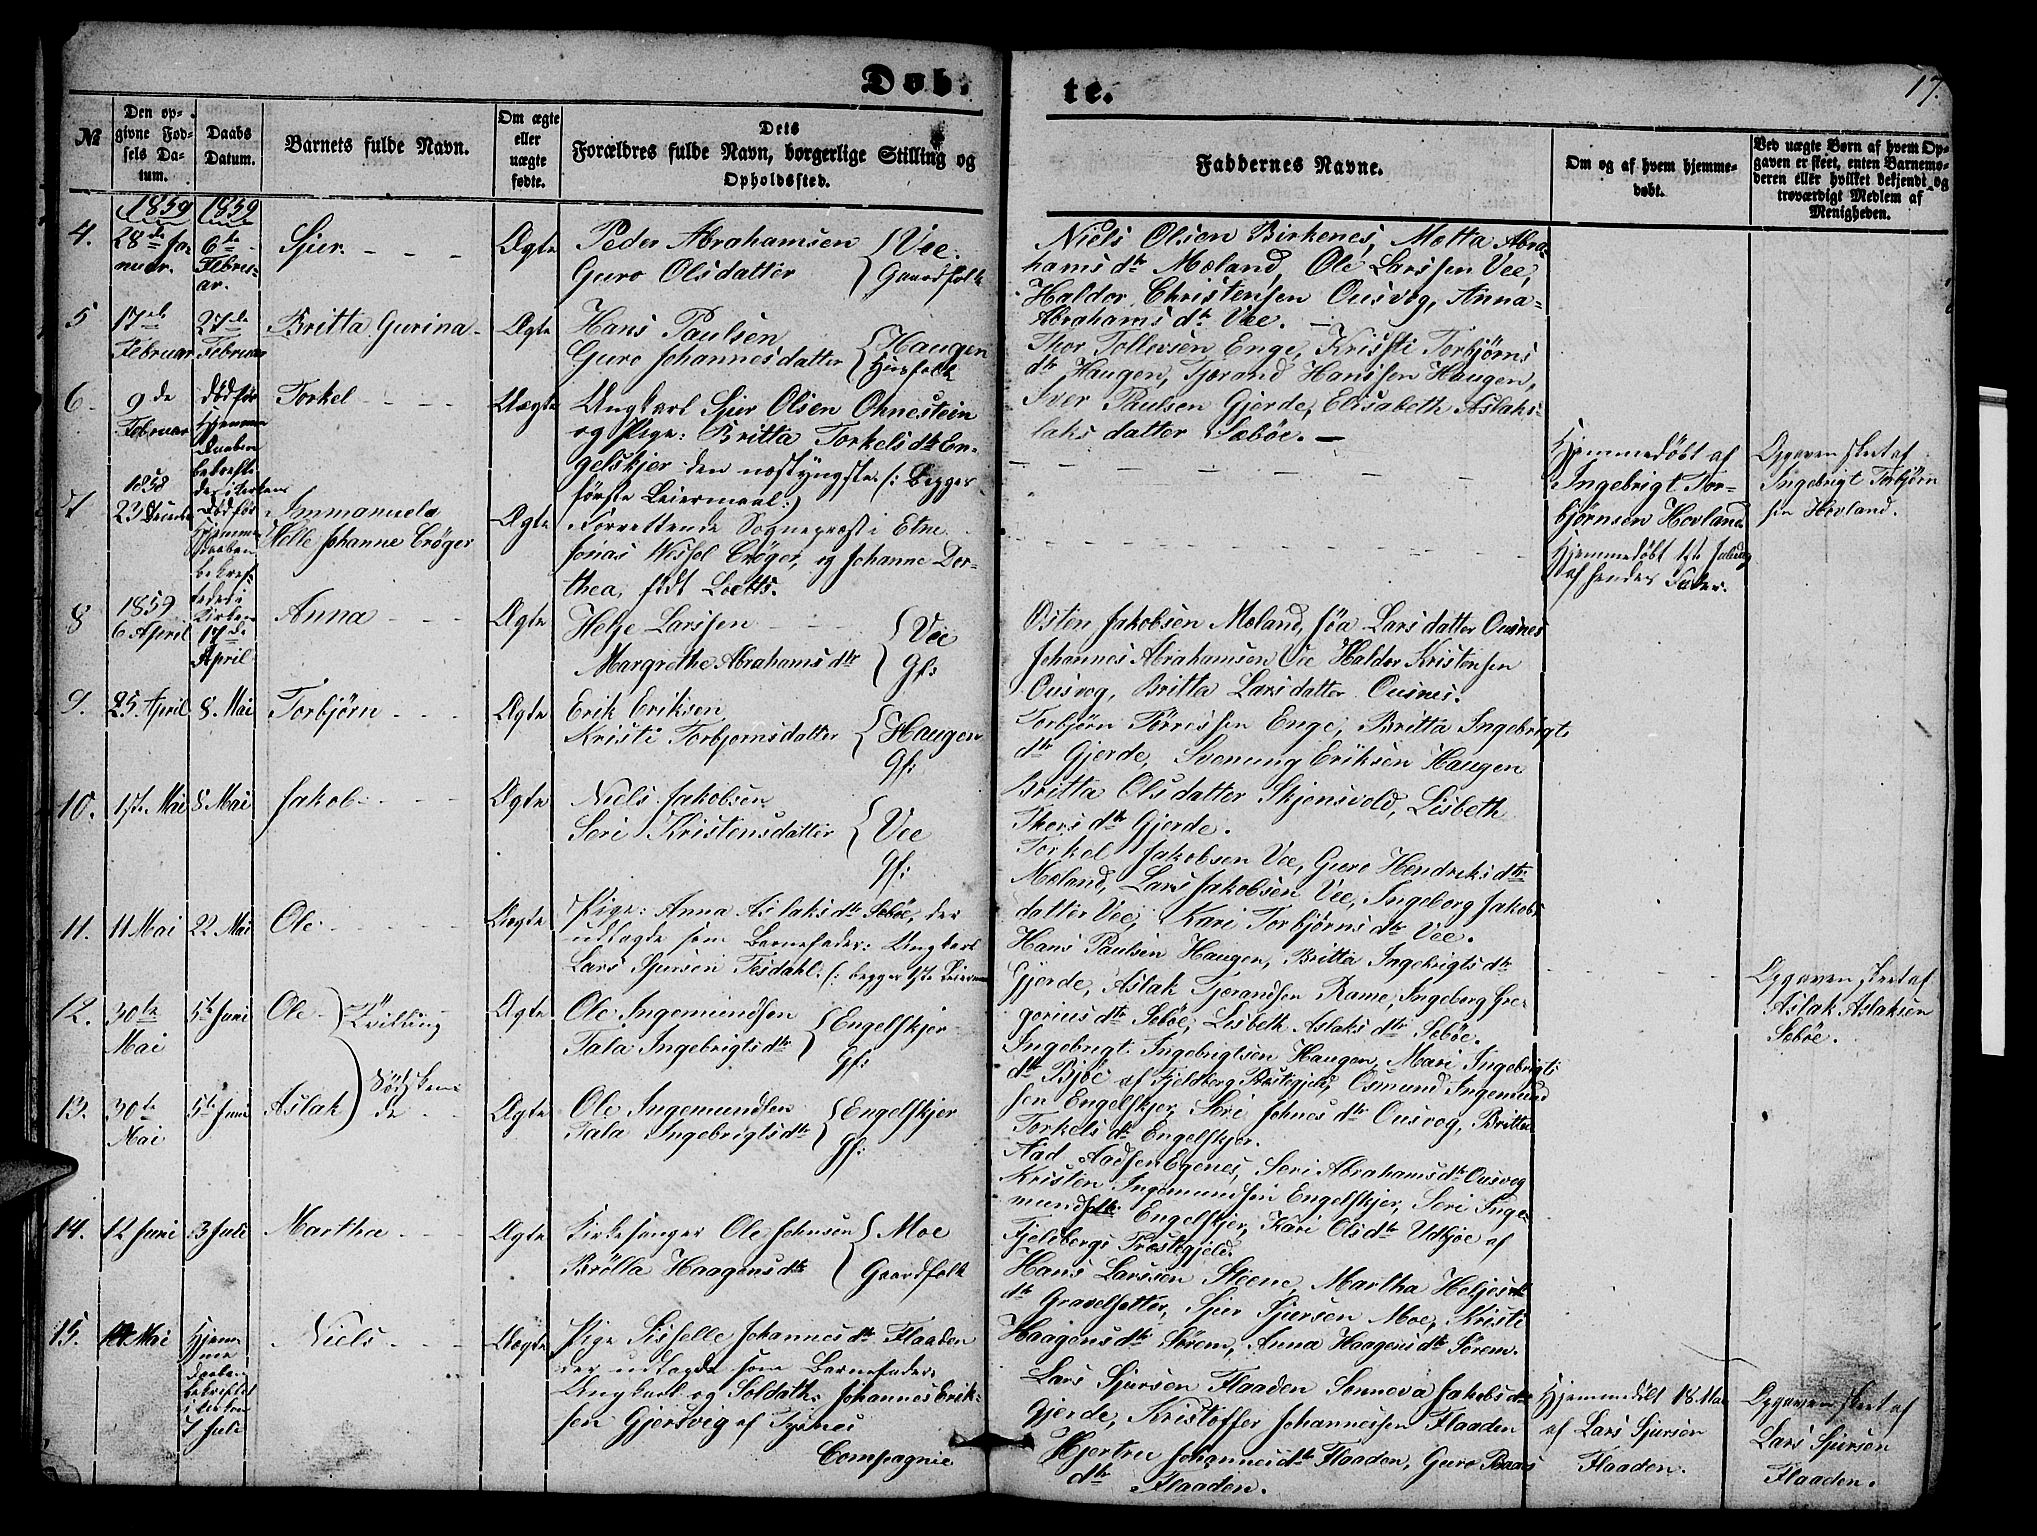 Døb-
te.
17.
№
Den op-
givne Fød-
sels Da-
tum.
Daabs
Datum.
Barnets fulde Navn.
Om ægte
eller
uægte
fødte.
Dets
Forældres fulde Navn, borgerlige Stilling og
Opholdssted.
Faddernes Navne.
Om og af hvem hjemme-
døbt.
Ved uægte Børn af hvem Op-
gaven er skeet, enten Barnemo-
deren eller hvilket bekjendt og
troværdigt Medlem af
Menigheden.
1859
1859
4.
28de Ja-
nuar.
6te
Februar-
ar.
Sjur.
Ægte
Peder Abrahamsen
Guro Olsdatter
Vee.
Gaardfolk
Niels Olsen Birkenes, Metta Abra-
hams dtr Mæland, Ole Larssen Vee,
Haldor Christensen Ousvog, Anna
Abrahams dtr Vee.
5
17de
Februar
27de
Februar
Britta Gurina
Ægte
Hans Paulsen
Guro Johannesdatter
Haugen
Huusfolk
Thor Tollevsen Enge, Kristi Torbjørns
dtr Haugen, Tjerand Hanssen Haugen,
Iver Paulsen Gjerde, Elisabeth Aslaks-
laks datter Sæbøe.
6.
9de
Februar
dødfør
Hjemme
Daaben
bekræfte
des i Kirken
Torkel
Uægte
Ungkarl Sjur Olsen Ohnestein
og Pige: Britta Torkelsdtr En-
gelskjer den næstyngste (: Begges
første Leiermaal:)
Hjemmedøbt af
Ingebrigt Tor-
bjørnsen Hovland
Opgaven skeet af
Ingebrigt Torbjørn
sen Hovland.
7
1858
23 Decembr
Hjemme
daaben
bekræf-
tedes i
Kirken
Immanuela
Helle Johanne Crøger
Ægte
Forrettende Sognepræst i Etne
Jonas Wessel Crøger, og Johanne Dor-
thea, født Loetts.
Hjemmedøbt 1ste Juledag
af hendes Fader.
8
1859
6 April
17de
April
Anna
Ægte
Helje Larssen
Margrethe Abrahams dtr
Vee
Gf:
Østen Jakobsen Mæland, Sia Larsdatter Ousnes
Johannes Abrahamsen Vee Haldor Kristensen
Ousvog, Britta Larsdatter Ousnes.
9.
25 April
8. Mai
Torbjørn
Ægte
Erik Eriksen
Kristi Torbjørnsdatter
Haugen
Gf:
Torbjørn Tørressen Enge, Britta Ingebrigts
dtr Gjerde, Svenung Eriksen Haugen
Britta Olsdatter Skjensvold, Lisbeth
Thors dtr Gjerde.
10.
1ste Mai
8 Mai
Jakob
Ægte
Niels Jakobsen
Seri Kristensdatter
Vee
Gf:
Torkel Jakobsen Vee, Guro Hendriks dtr
Mæland, Lars Jakobsen Vee, Ingeborg Jakobs
datter Vee, Kari Torbjørns dtr Vee.
11.
11 Mai
22 Mai
Ole
Uægte
Pige: Anna Aslaks dtr Sebøe, der
udlagde som Barnefader: Ungkarl
Lars Sjursen Tesdahl. (: begges 1ste Leiermaal
Hans Paulsen Haugen, Britta Ingebrigts dtr
Gjerde, Aslak Tjerandsen Rame, Ingeborg Gre-
gorius dtr Sebøe, Lisbeth Aslaks dtr Sebøe.
Opgaven skeet af
Aslak Aslaksen
Sebøe.
12.
30te
Mai
5te Juni
Ole
Tvilling
Ægte
Ole Ingemundsen
Tala Ingebrigts dtr
Engelskjer
Gf:
Ingebrigt Ingebrigtsen Haugen, Mari Ingebrigts
dtr Bjøe af Fjeldberg Præstegjeld, Osmund Ingemund
sen Engelskjer, Seri Johnes dtr Ousvog, Britta
Torkels dtr Engelskjer.
13.
30te
Mai
5te Juni
Aslak
Sødsken-
de
Ægte
Ole Ingemundsen
Tala Ingebrigts dtr
Engelskjer
Gf:
Aad Aadsen Egenes, Seri Abrahams dtr Ousvog
Kristen Ingemundsen Engelskjer, Seri Inge-
mundsdtr Engelskjer, Kari Olsdtr Udbjøe af
Fjelbergs Præstegjeld.
14.
12 Juni
3 Juli
Martha
Ægte
Kirkesanger Ole Johnsen
Brølla Haagens dtr
Moe
Gaardfolk
Hans Larssen Steene, Martha Heljes
dtr Gravelsetter, Sjur Sjursen Moe, Kristi
Haagens dtr Sørem, Anna Haagens dtr Sørem.
15.
Mai
Hjem-
me
daaben
bekræftet
i Kirken
7 Juli
Niels
Uægte
Pige Sisselle Johannes dtr Flaaden
der udlagde som Barnefader
Ungkarl og Soldat: Johannes Erik-
sen Gjersvig af Tysnes
Compagnie
Lars Sjursen Flaaden Sonneva Jakobs dtr
Gjerde, Kristoffer Johannessen Flaaden
Hjertru Johannes dtr Flaaden, Guro Baars
dtr Flaaden.
Hjemmedøbt 18. Mai
af Lars Sjursen
Flaaden.
Opgaven skeet af
Lars Sjursen
Flaaden.